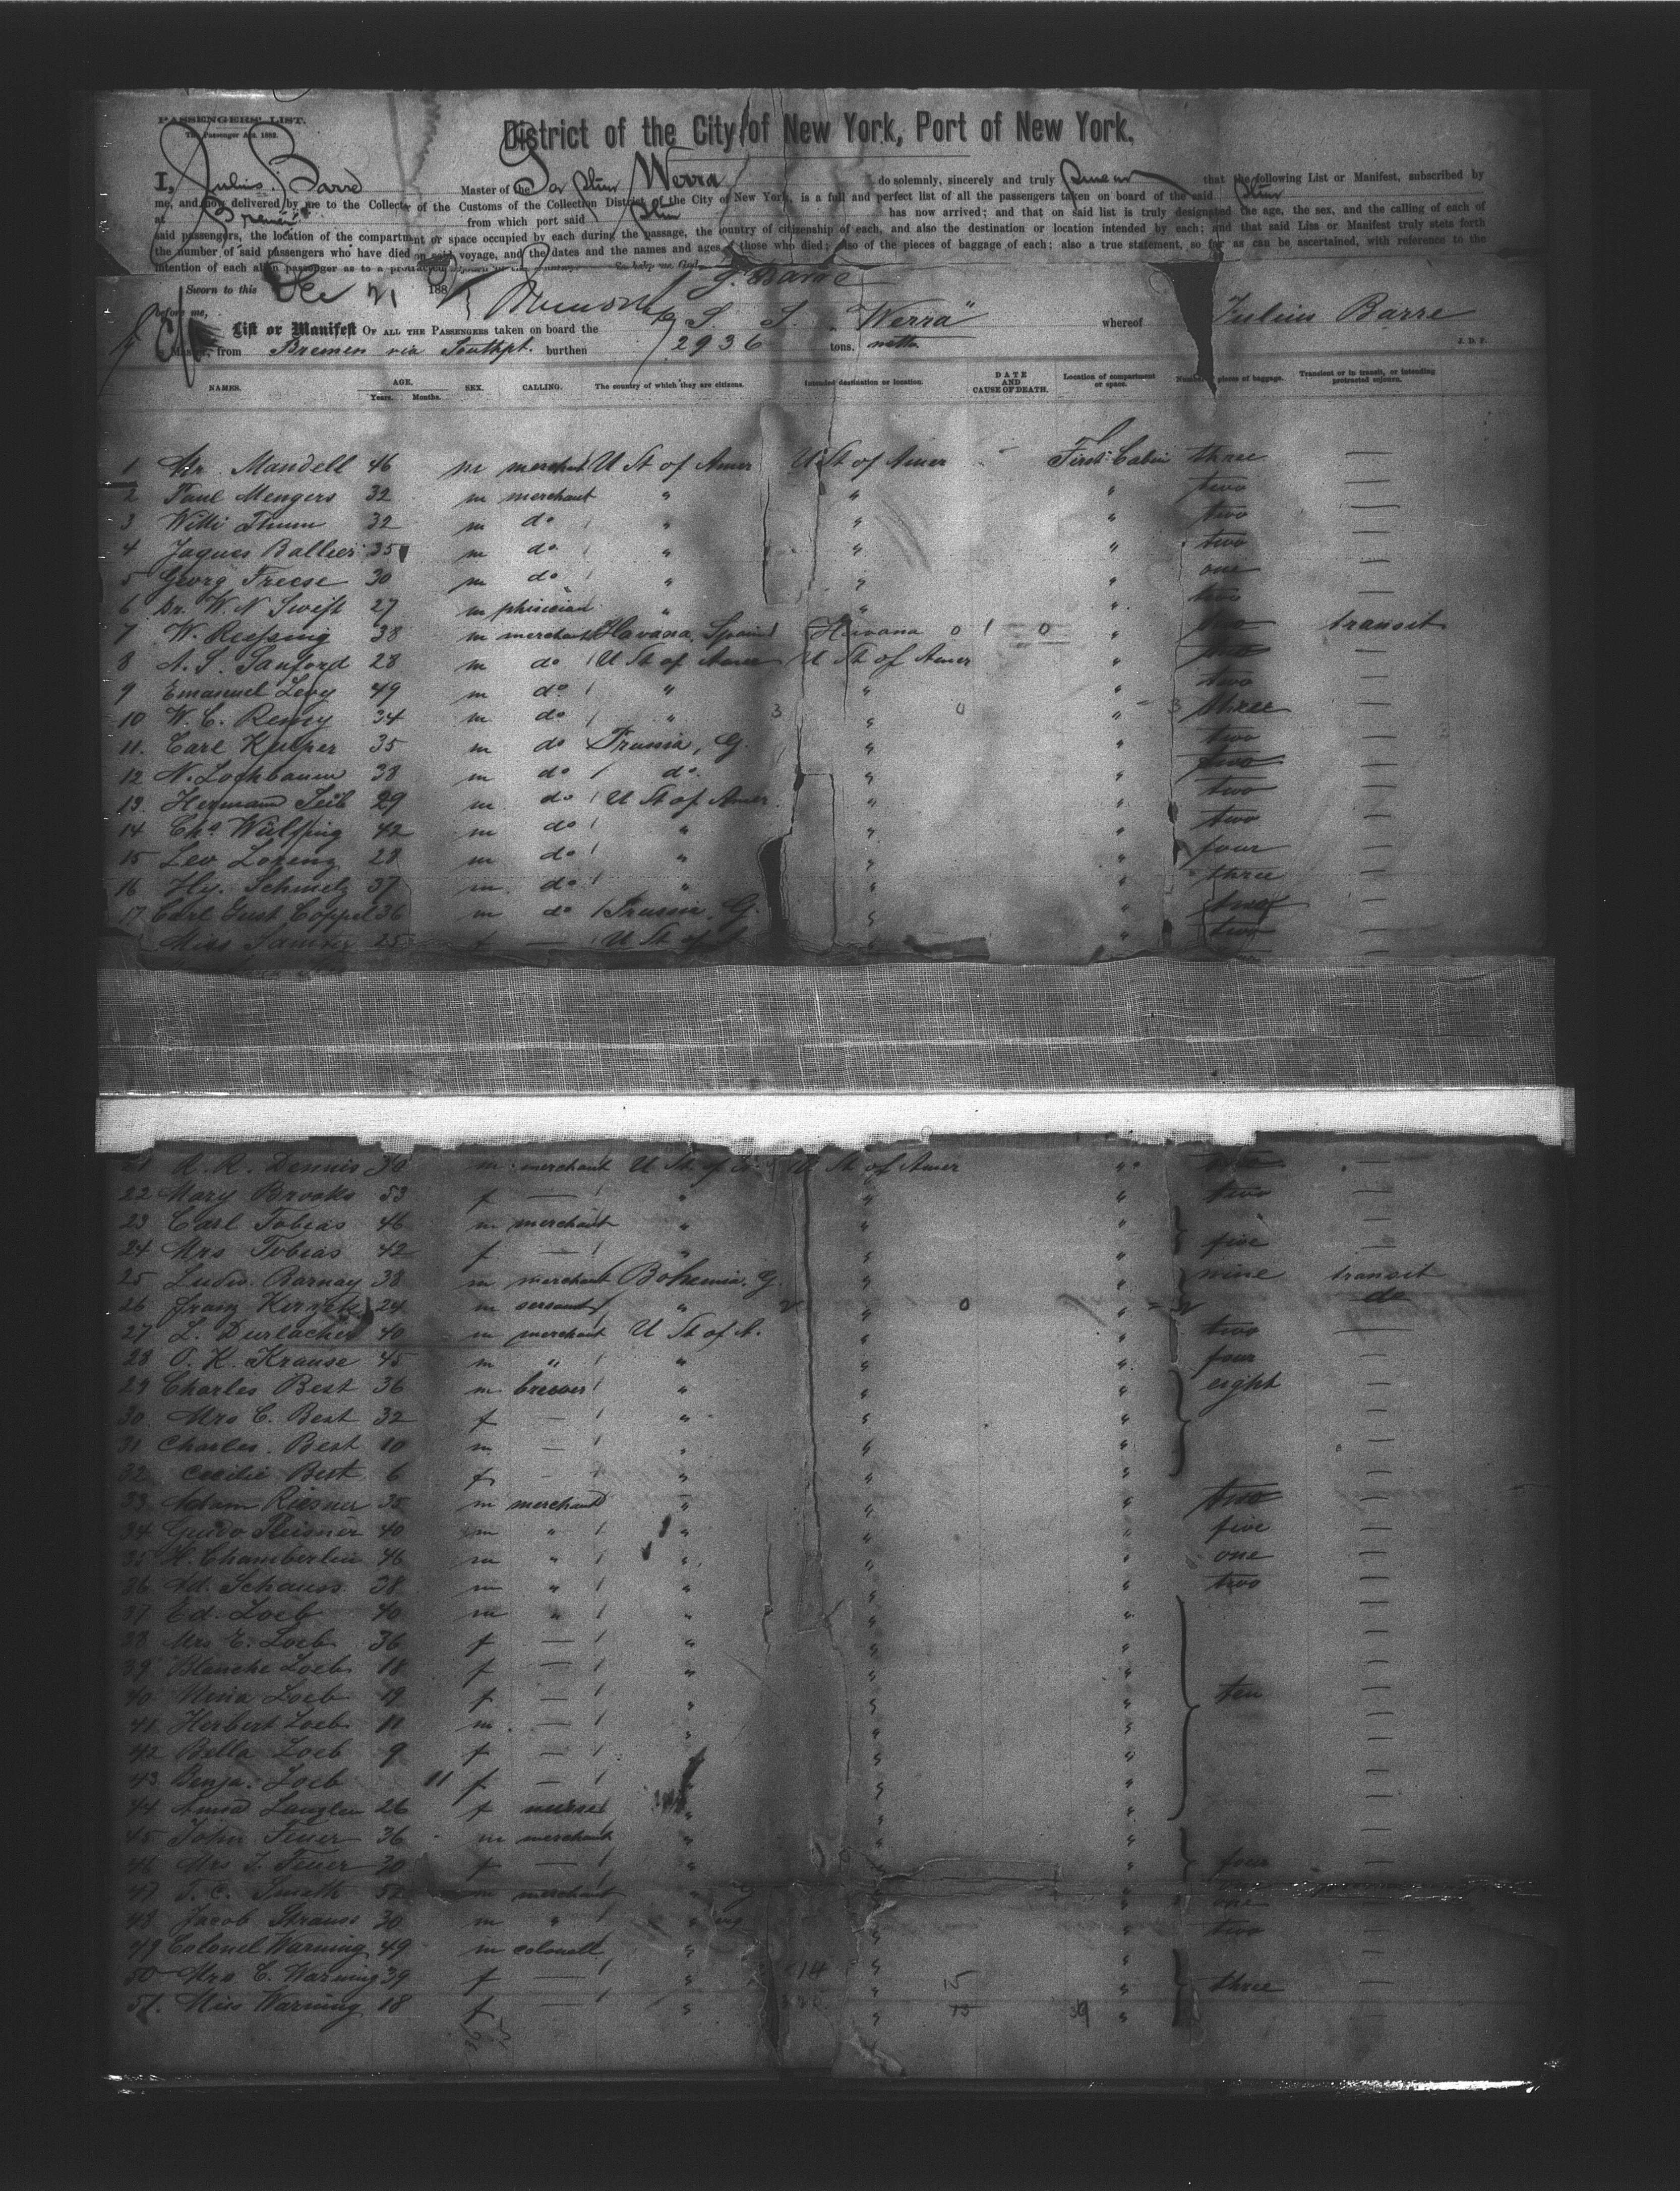 PASSENGERS' LIST.
The Passenger Act, 1882.
District of the City of New York, Port of New York.
I, Julius Barre Master of the Werra do solemnly, sincerely and truly swear that the following List or Manifest, subscribed by
me, and now delivered by me to the Collector of the Customs of the Collection District of the City of New York, is a full and perfect list of all the passengers taken on board of the said
at Bremen from which port said has now arrived; and that on said list is truly designated the age, the sex, and the calling of each of
said passengers, the location of the compartment or space occupied by each during the passage, the country of citizenship of each, and also the destination or location intended by each; and that said Liss or Manifest truly stets forth
the number of said passengers who have died on said voyage, and the dates and the names and ages of those who died; also of the pieces of baggage of each; also a true statement, so far as can be ascertained, with reference to the
intention of each alien passenger as to a protracted sojourn in this country. So help me God.
J. Barre
Sworn to this Dec 21 188
before me,
List or Manifest OF ALL THE PASSENGERS taken on board the S. S. "Werra" whereof Julius Barre
Master, from Bremen via Southpt. burthen 2936 tons. netto
J. D. P.
NAMES. AGE. Years. Months. SEX. CALLING. The country of which they are citizens. Intended destination or location. DATE AND CAUSE OF DEATH. Location of compartment or space. Number of pieces of baggage. Transient or in transit, or intending protracted sojourn.
1 Mr. Mandell 46 m merchant U St of Amer U St of Amer First Cabin three —
2 Paul Mengers 32 m merchant " " " two —
3 Willi Thum 32 m do " " " two —
4 Jaques Ballier 35 m do " " " two —
5 Georg Freese 30 m do " " " one —
6 Dr. W. N Swift 27 m phisician " " " two —
7 W. Reefsing 38 m merchant Havana, Spain Havana 0 1 0 " two transit
8 A. S. Sanford 28 m do U St of Amer U St of Amer " two —
9 Emanuel Levy 49 m do " " " two —
10 W. C. Remy 34 m do " 3 " 0 " 3 three —
11. Carl Kulper 35 m do Prussia, G. " " two —
12 N. Lochbaum 38 m do do. " " two —
13. Hermann Seib 29 m do U St of Amer. " " two —
14 Chs Wülfing 42 m do " " " two —
15 Leo Lorenz 28 m do " " " four —
16 Hy. Schmelz 37 m. do " " " three —
17 Carl Gust Coppel 36 m do Prussia, G. " " two —
Miss 25 f — U St of " " two —
21 A. R. Dennis 30 m merchant U St. of U St of Amer " two —
22 Mary Brooks 53 f — " " " two —
23 Carl Tobias 46 m merchant " " " —
24 Mrs Tobias 42 f — " " " five —
25 Ludw. Barnay 38 m merchant Bohemia. G. " " nine transit
26 Franz 24 m servant " 2 " 0 " 2 do
27 L. Durlacher 40 m merchant U St of A. " " two —
28 O. K. Krause 45 m " " " " four —
29 Charles Best 36 m brewer " " " eight —
30 Mrs C. Best 32 f — " " " —
31 Charles. Best 10 m — " " " —
32 Cecilie Best 6 f — " " " —
33 Adam Riesner 35 m merchand " " " two —
34 Guido Pleisner 40 m " " " " five —
35 H. Chamberlin 46 m " " " " one —
36 Ad. Schauss. 38 m " " " " two —
37 Ed. Loeb 40 m " " " " —
38 Mrs E. Loeb 36 f — " " " —
39 Blanche Loeb 18 f — " " " —
40 Nina Loeb 19 f — " " " ten —
41 Herbert Loeb 11 m. — " " " —
42 Bella Loeb 9 f — " " " —
43 Benja. Loeb 11 f — " " —
44 Langlen 26 f nurse " " " —
45 John Feuer 36 m merchant " " " —
46 Mrs J. Feuer 30 f — " " " four —
47 T. C. Smith 52 m merchant " " " one
48 Jacob Strauss 30 m " " " " two —
49 Colonel Warning 49 m colonell " " " —
50 Mrs C. Warning 39 f — " 14 " 15 " three —
51. Miss Warning 18 f — " " 39 " —